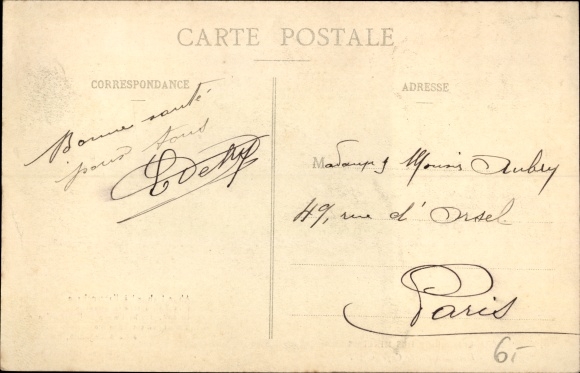 CARTE POSTALE
CORRESPONDANCE
Bonne santé
pour tous
ADRESSE
Madame & Aubry
49, rue d'Orsel
Paris
6-